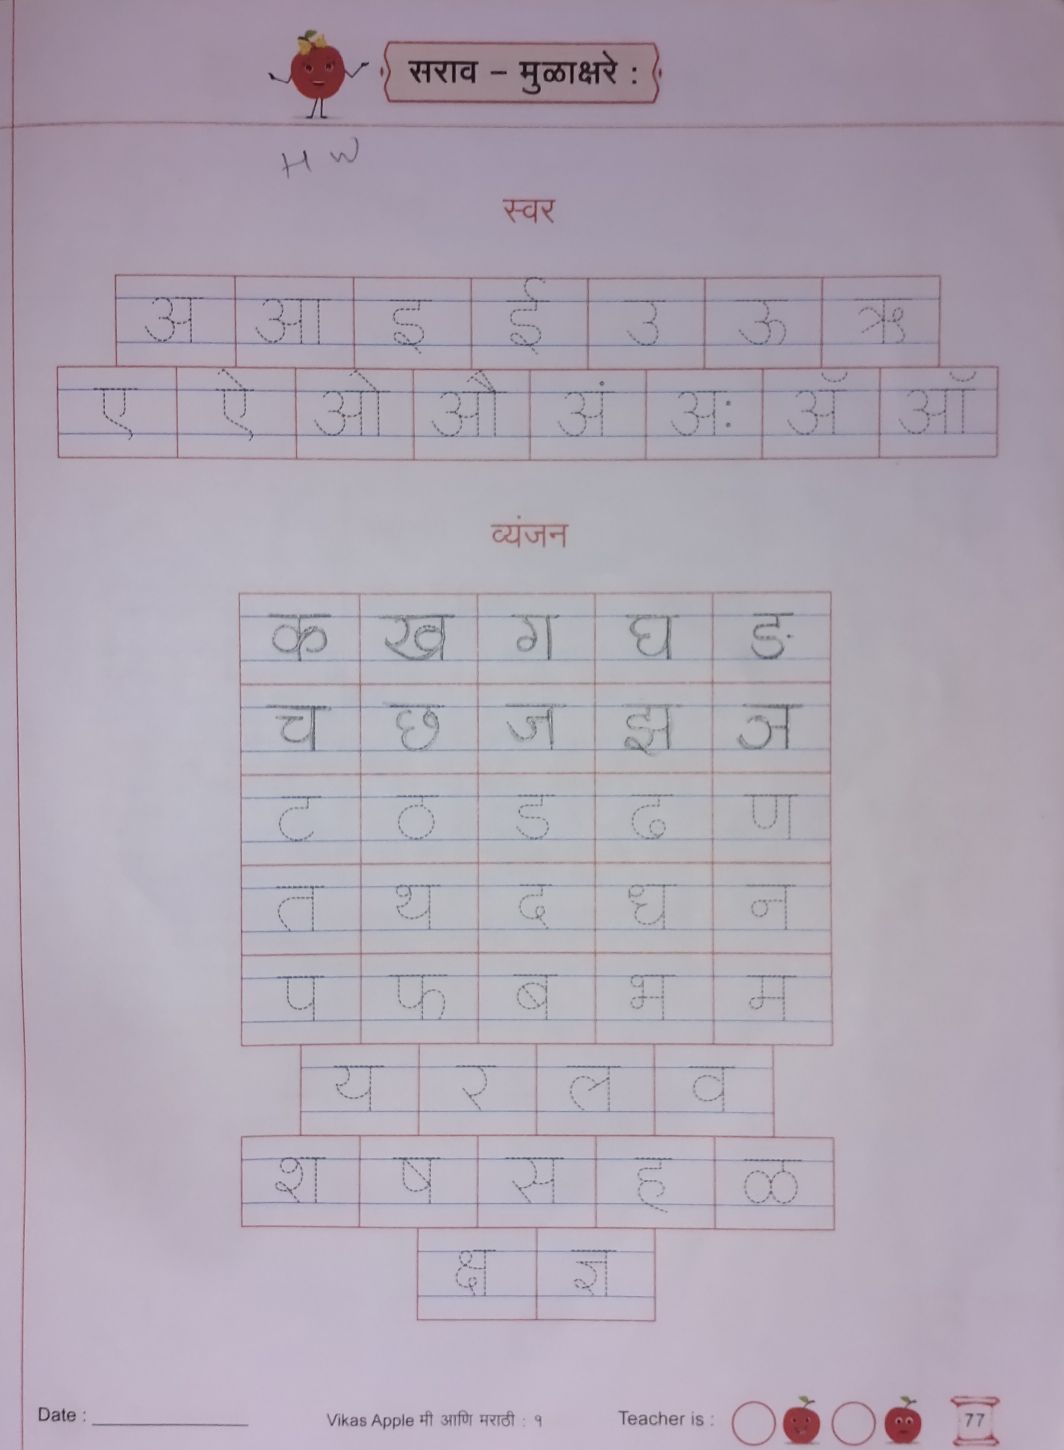 सराव – मुळाक्षरे :
H W
स्वर
अ आ इ ई उ ऊ ऋ
ए ऐ ओ औ अं अः ॲ ऑ
व्यंजन
क ख ग घ ङ
च छ ज झ ञ
ट ठ ड ढ ण
त थ द ध न
प फ ब भ म
य र ल व
श ष स ह ळ
क्ष ज्ञ
Date : Vikas Apple मी आणि मराठी : १ Teacher is : 77